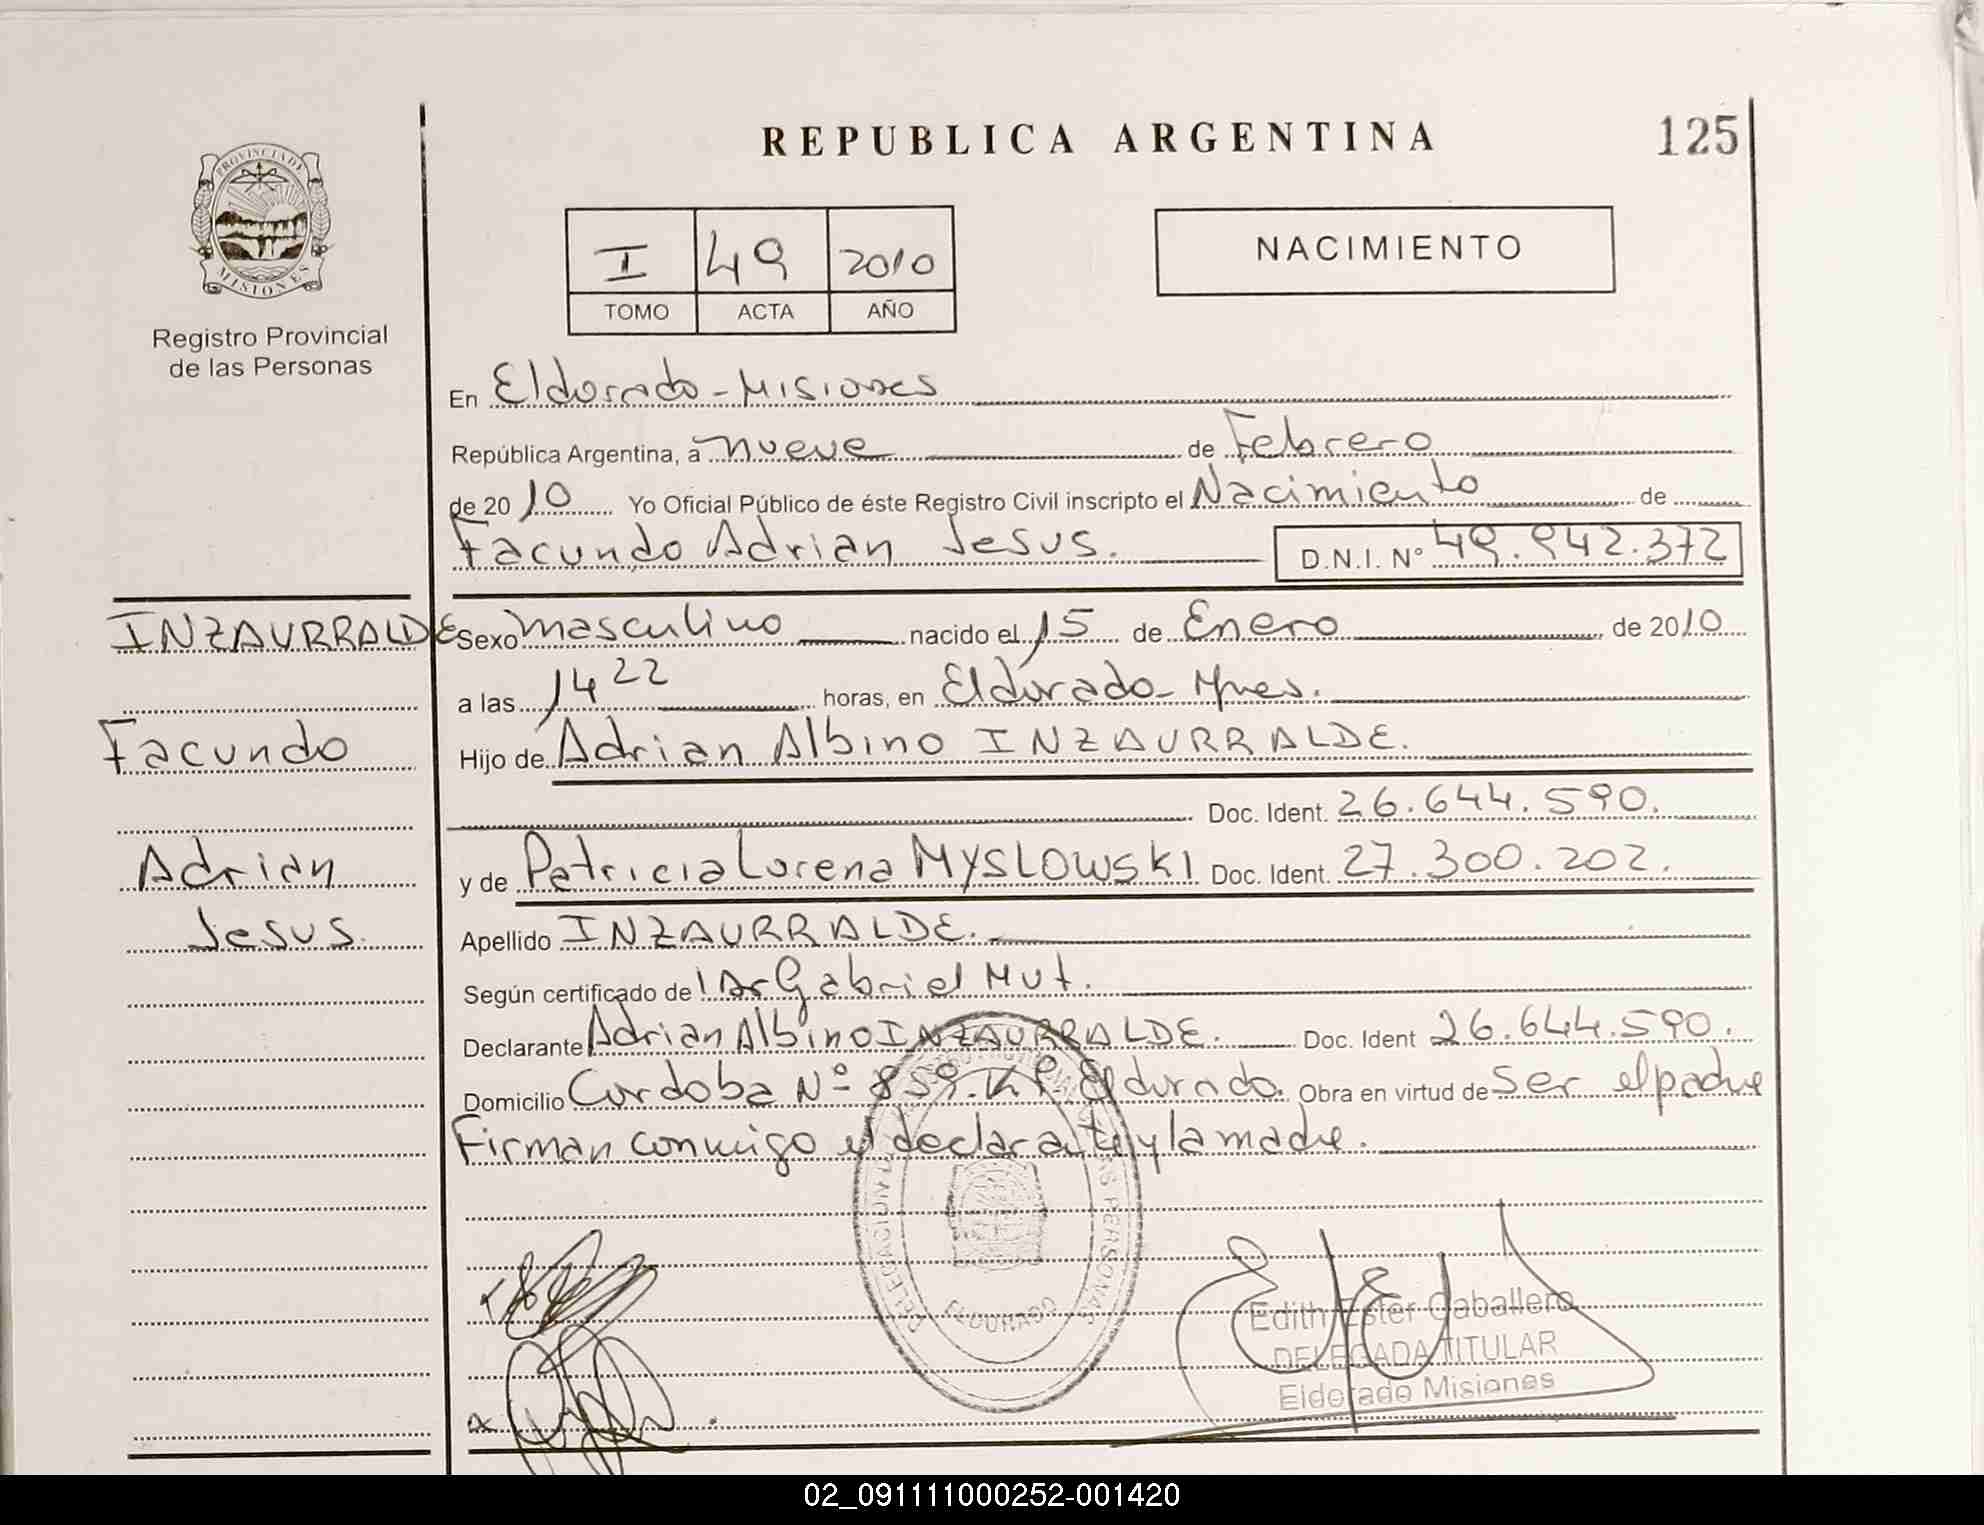 REPUBLICA ARGENTINA
125
PROVINCIA DE
MISIONES
Registro Provincial
de las Personas
I 49 2010
TOMO ACTA AÑO
NACIMIENTO
En Eldorado - Misiones
República Argentina, a nueve de Febrero
de 2010 Yo Oficial Público de éste Registro Civil inscripto el Nacimiento de
Facundo Adrian Jesus. D.N.I. Nº 49.942.372
INZAURRALDE
Facundo
Adrian
Jesus.
Sexo masculino nacido el 15 de Enero de 2010
a las 14 22 horas, en Eldorado - Mnes.
Hijo de Adrian Albino INZAURRALDE.
Doc. Ident. 26.644.590.
y de Patricia Lorena MYSLOWSKI Doc. Ident. 27.300.202.
Apellido INZAURRALDE.
Según certificado del Dr Gabriel Mut.
Declarante Adrian Albino INZAURRALDE. Doc. Ident 26.644.590.
Domicilio Cordoba Nº 859. Eldorado. Obra en virtud de Ser el padre
Firman conmigo el declarante y la madre.
ELDORADO
Edith Ester Caballero
DELEGADA TITULAR
Eldorado Misiones
02_091111000252-001420